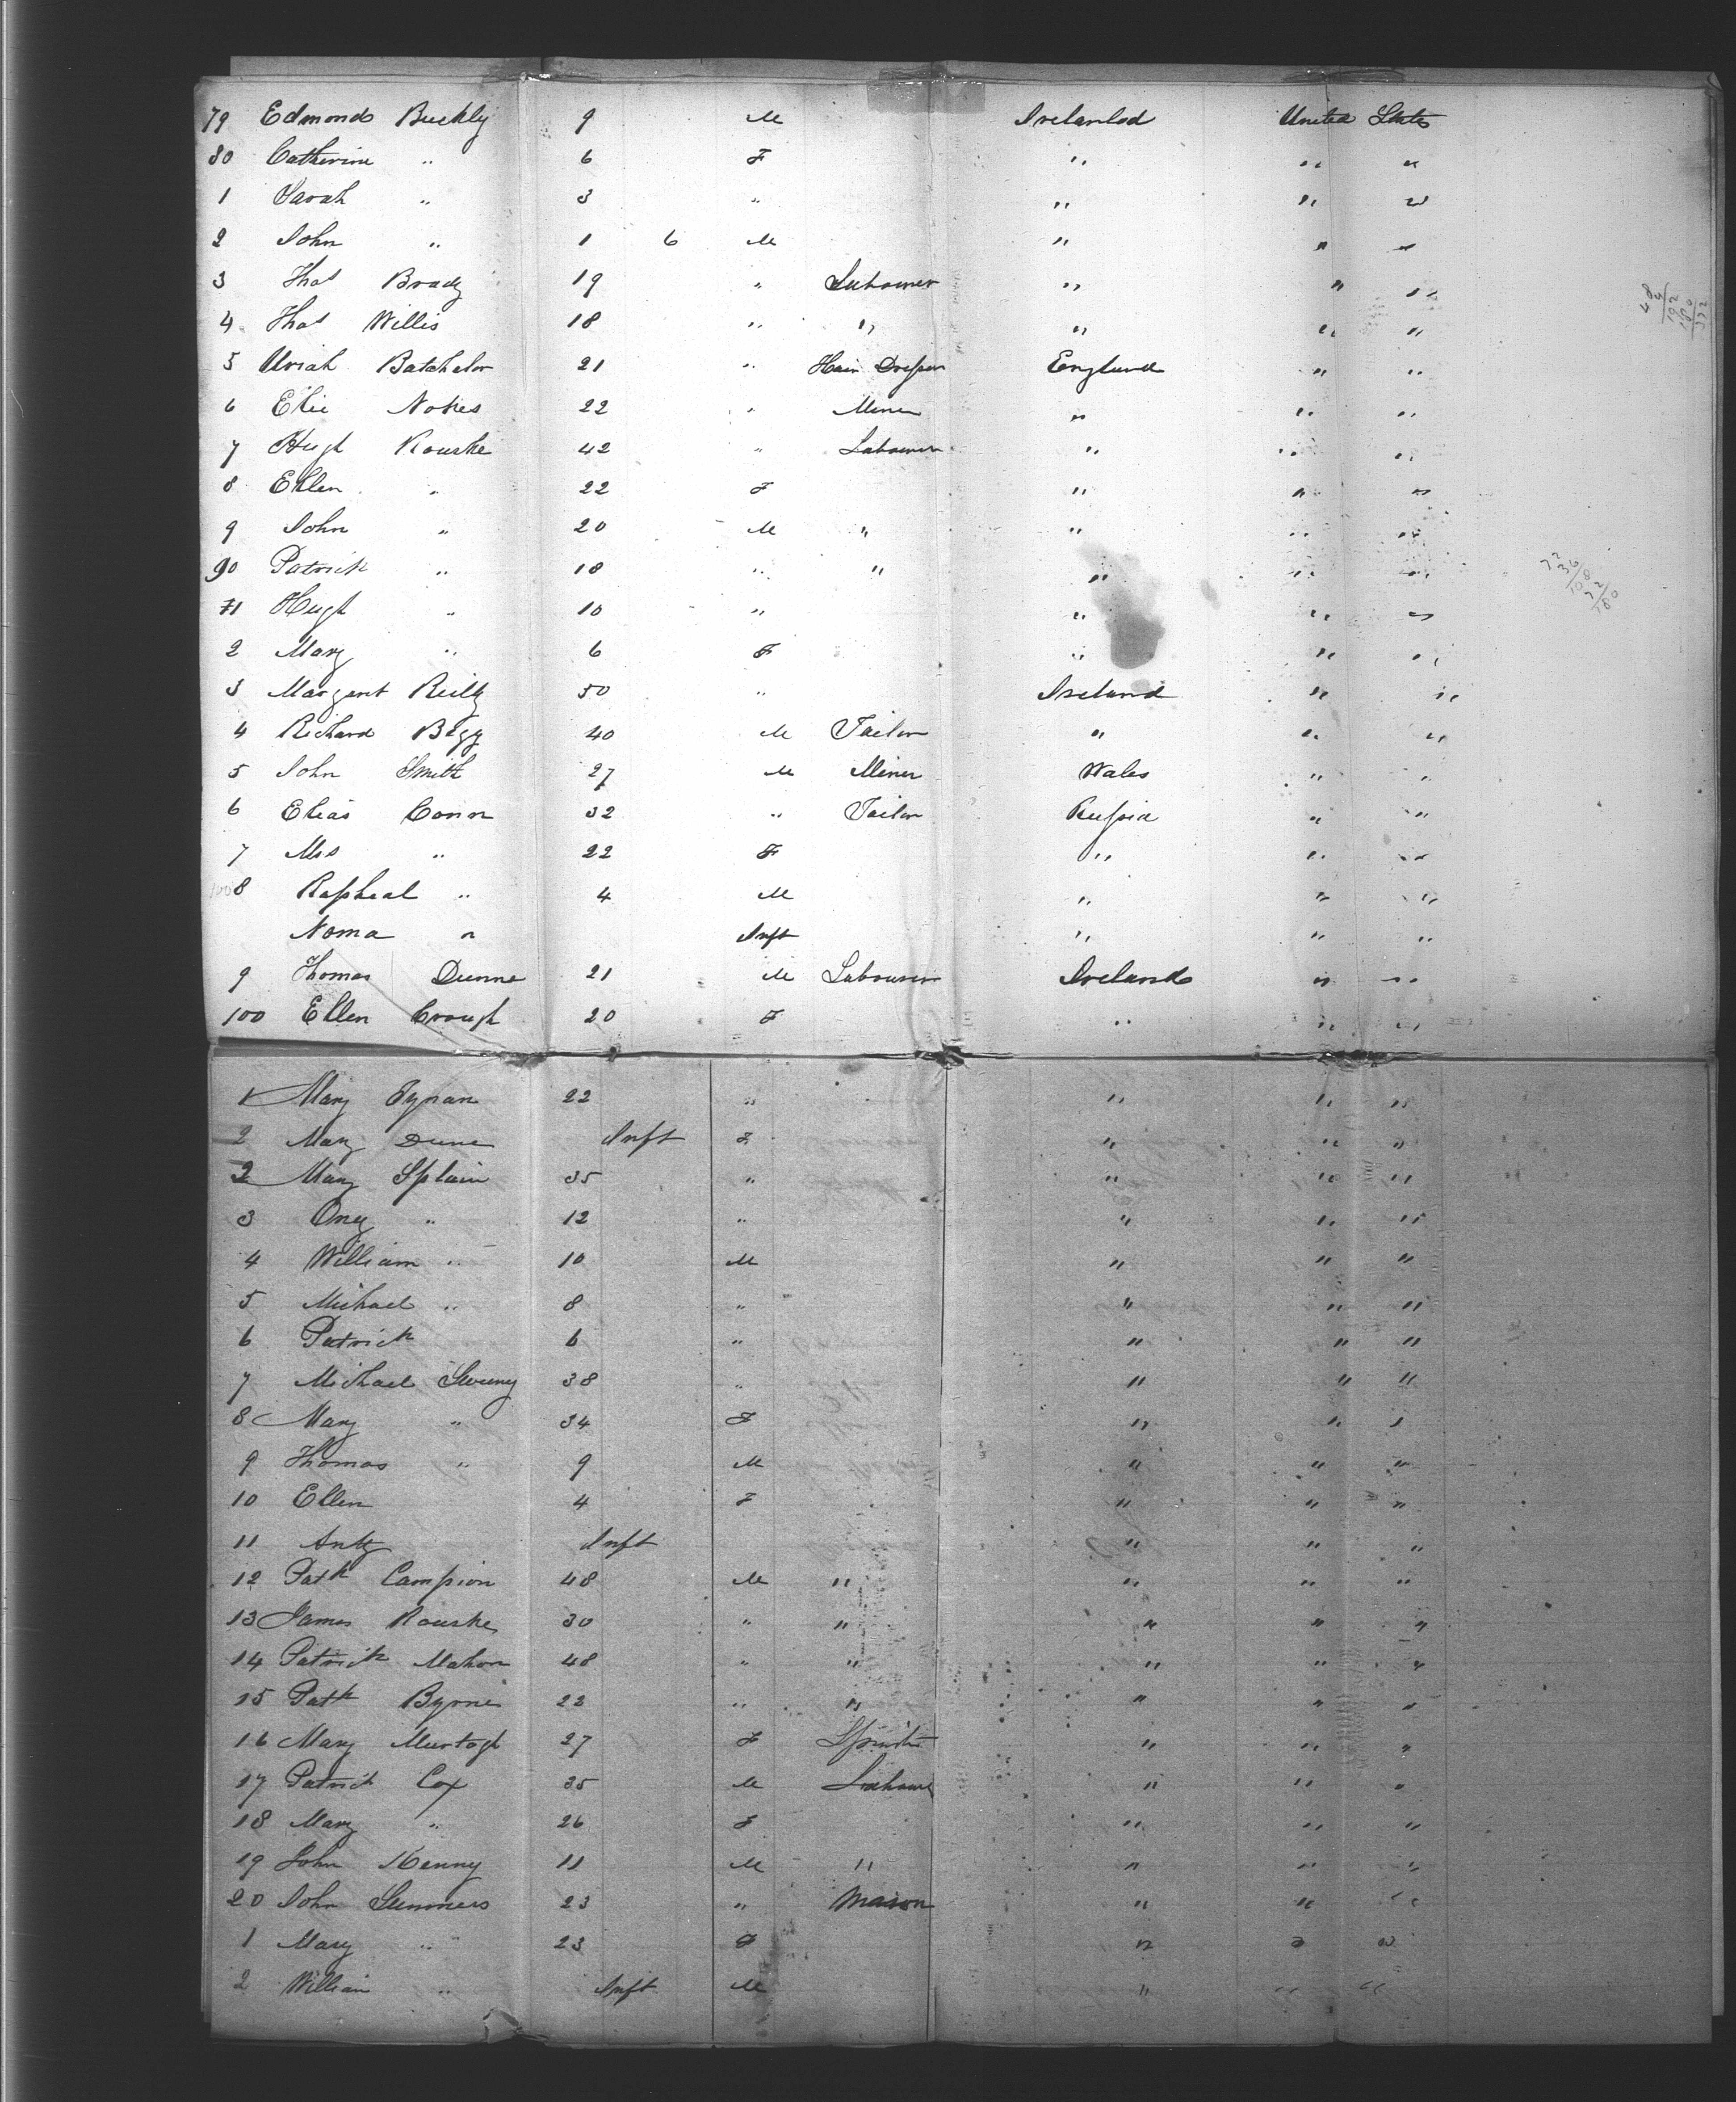 79 Edmond Buckly 9 M Irelanlad United States
80 Catherine " 6 F " " "
1 Sarah " 3 " " " "
2 John " 1 6 M " " "
3 Thos Brady 19 " Labourer " " "
4 Thos Willis 18 " " " " "
5 Uriah Batchelor 21 " Hair Dresser England " "
6 Elie Nokes 22 " Miner " " "
7 Hugh Rourke 42 " Labourer " " "
8 Ellen " 22 F " " "
9 John " 20 M " " " "
90 Patrick " 18 " " " " "
71 Hugh " 10 " " " "
2 Mary " 6 F " " "
3 Margaret Reilly 50 " Ireland " "
4 Richard Begg 40 M Tailor " " "
5 John Smith 27 M Miner Wales " "
6 Elias Conn 32 " Tailor Russia " "
7 Mrs " 22 F " " "
8 Rapheal " 4 M " " "
Noma " Inft " " "
9 Thomas Dunne 21 M Labourer Ireland " "
100 Ellen Crough 20 F " " "
1 Mary Tynan 22 " " " "
2 Mary Dunne Inft F " " "
2 Mary Splain 35 " " " "
3 Ony " 12 " " " "
4 William " 10 M " " "
5 Michael " 8 " " " "
6 Patrick 6 " " " "
7 Michael Sweeny 38 " " " "
8 Mary " 34 F " " "
9 Thomas " 9 M " " "
10 Ellen 4 F " " "
11 Anty Inft " " "
12 Patk Campion 48 M " " " "
13 James Rourke 30 " " " " "
14 Patrick Mahon 48 " " " " "
15 Patk Byrne 22 " " " " "
16 Mary Murtagh 27 F Spinster " " "
17 Patrick Cox 35 M Labour " " "
18 Mary " 26 F " " "
19 John Kenny 11 M " " " "
20 John Summers 23 " Mason " " "
1 Mary " 23 F " " "
2 William " Inft M " " "